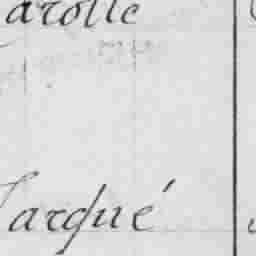 arolle
arqué